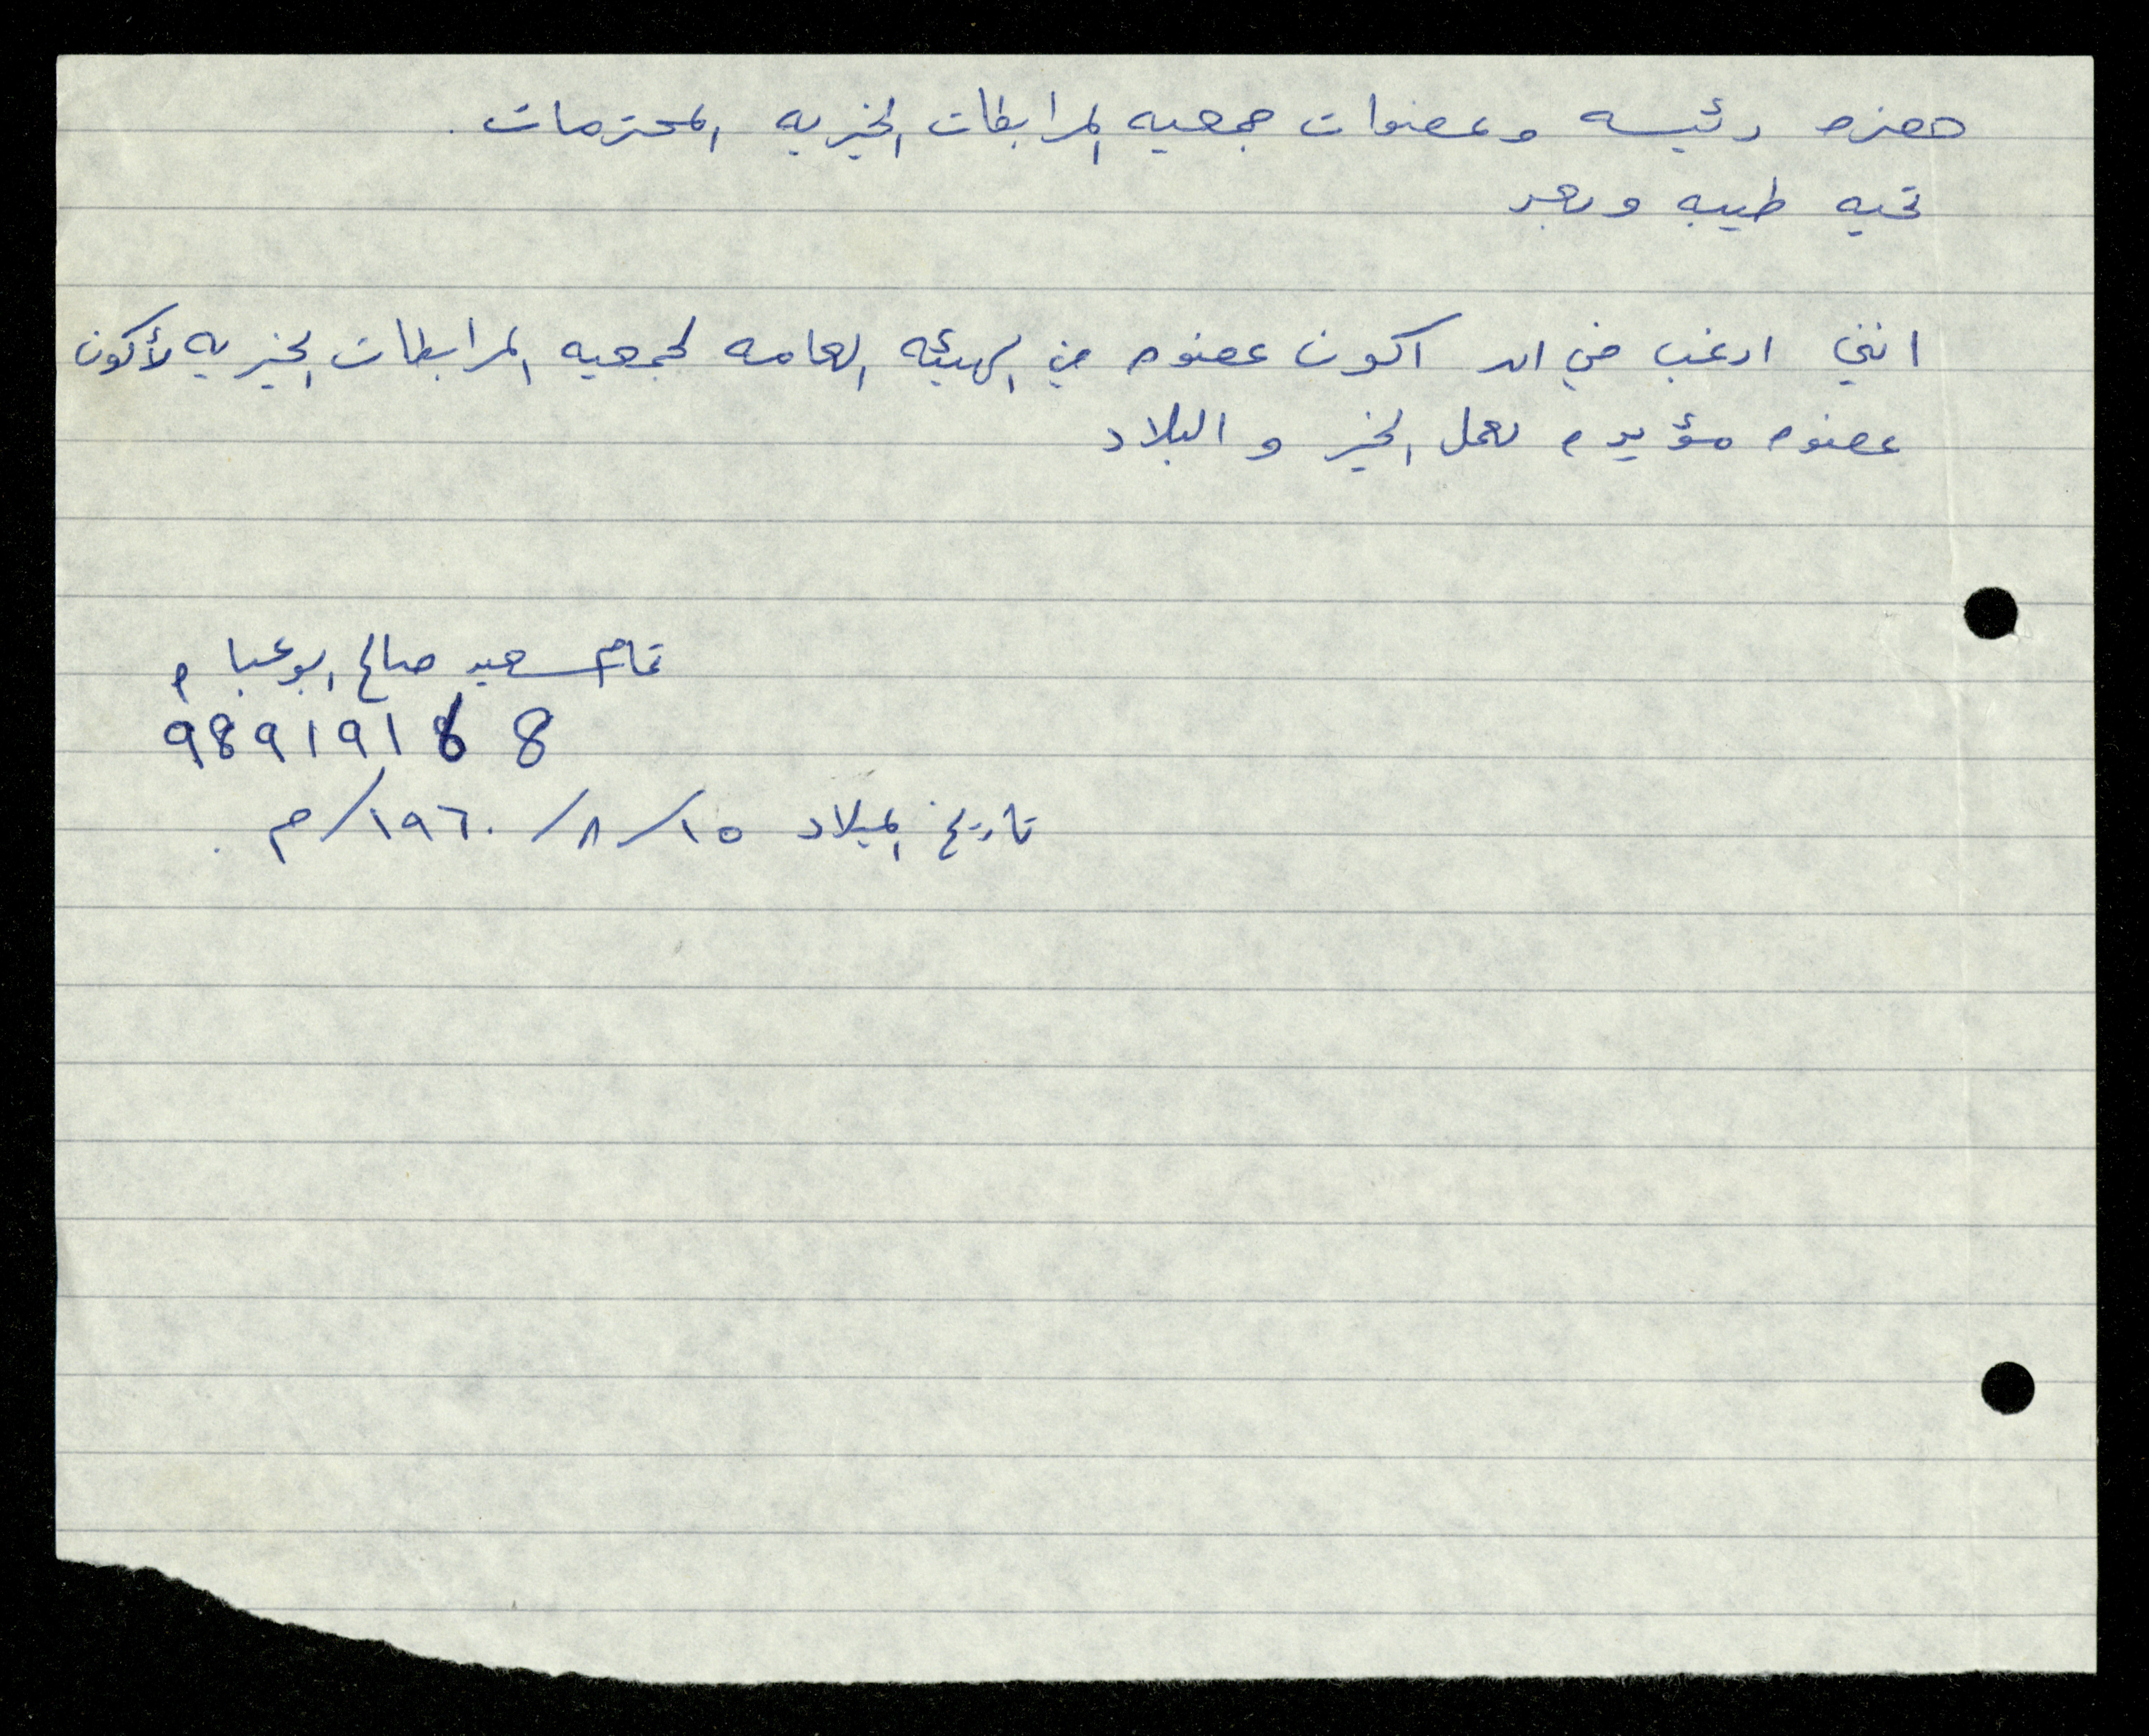 حضره رئيسه وعضوات جمعيه المرابطات الخيريه المحترمات .
تحيه طيبه وبعد
انني ارغب في ان اكون عضوه في الهيئه العامه لجمعيه المرابطات الخيريه لأكون
عضوه مؤيده لعمل الخير و البلاد
تمام سعيد صالح ابوعباه
98919188
تاريخ الميلاد ١٥/٨/١٩٦٠/م .